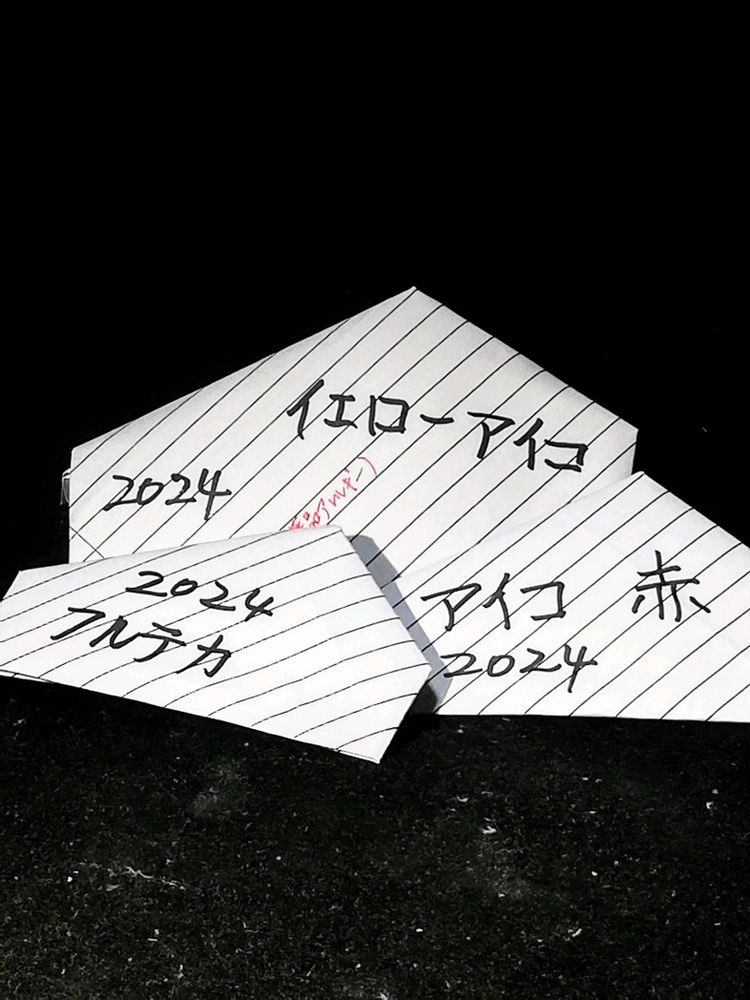 イエローアイコ
2024
アイコ 赤
2024
2024
フルテカ